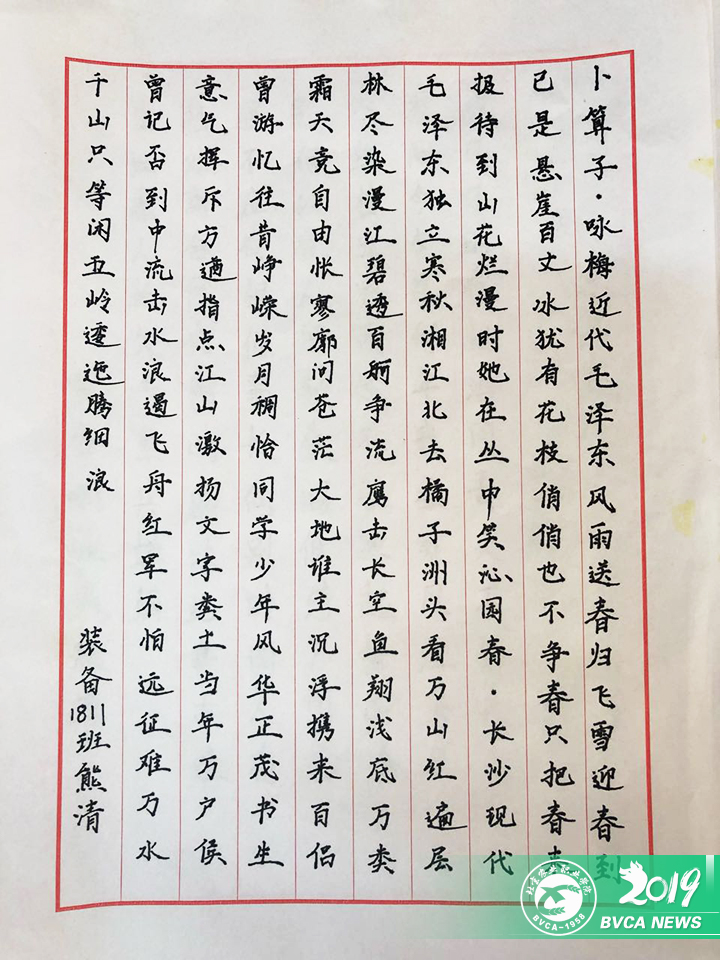 卜算子·咏梅近代毛泽东风雨送春归飞雪迎春到
已是悬崖百丈冰犹有花枝俏俏也不争春只把春来
报待到山花烂漫时她在丛中笑沁园春·长沙现代
毛泽东独立寒秋湘江北去橘子洲头看万山红遍层
林尽染漫江碧透百舸争流鹰击长空鱼翔浅底万类
霜天竞自由怅寥廓问苍茫大地谁主沉浮携来百侣
曾游忆往昔峥嵘岁月稠恰同学少年风华正茂书生
意气挥斥方遒指点江山激扬文字粪土当年万户侯
曾记否到中流击水浪遏飞舟红军不怕远征难万水
千山只等闲五岭逶迤腾细浪
装备1811班熊清
北京农业职业学院
BVCA-1958
2019
BVCA NEWS